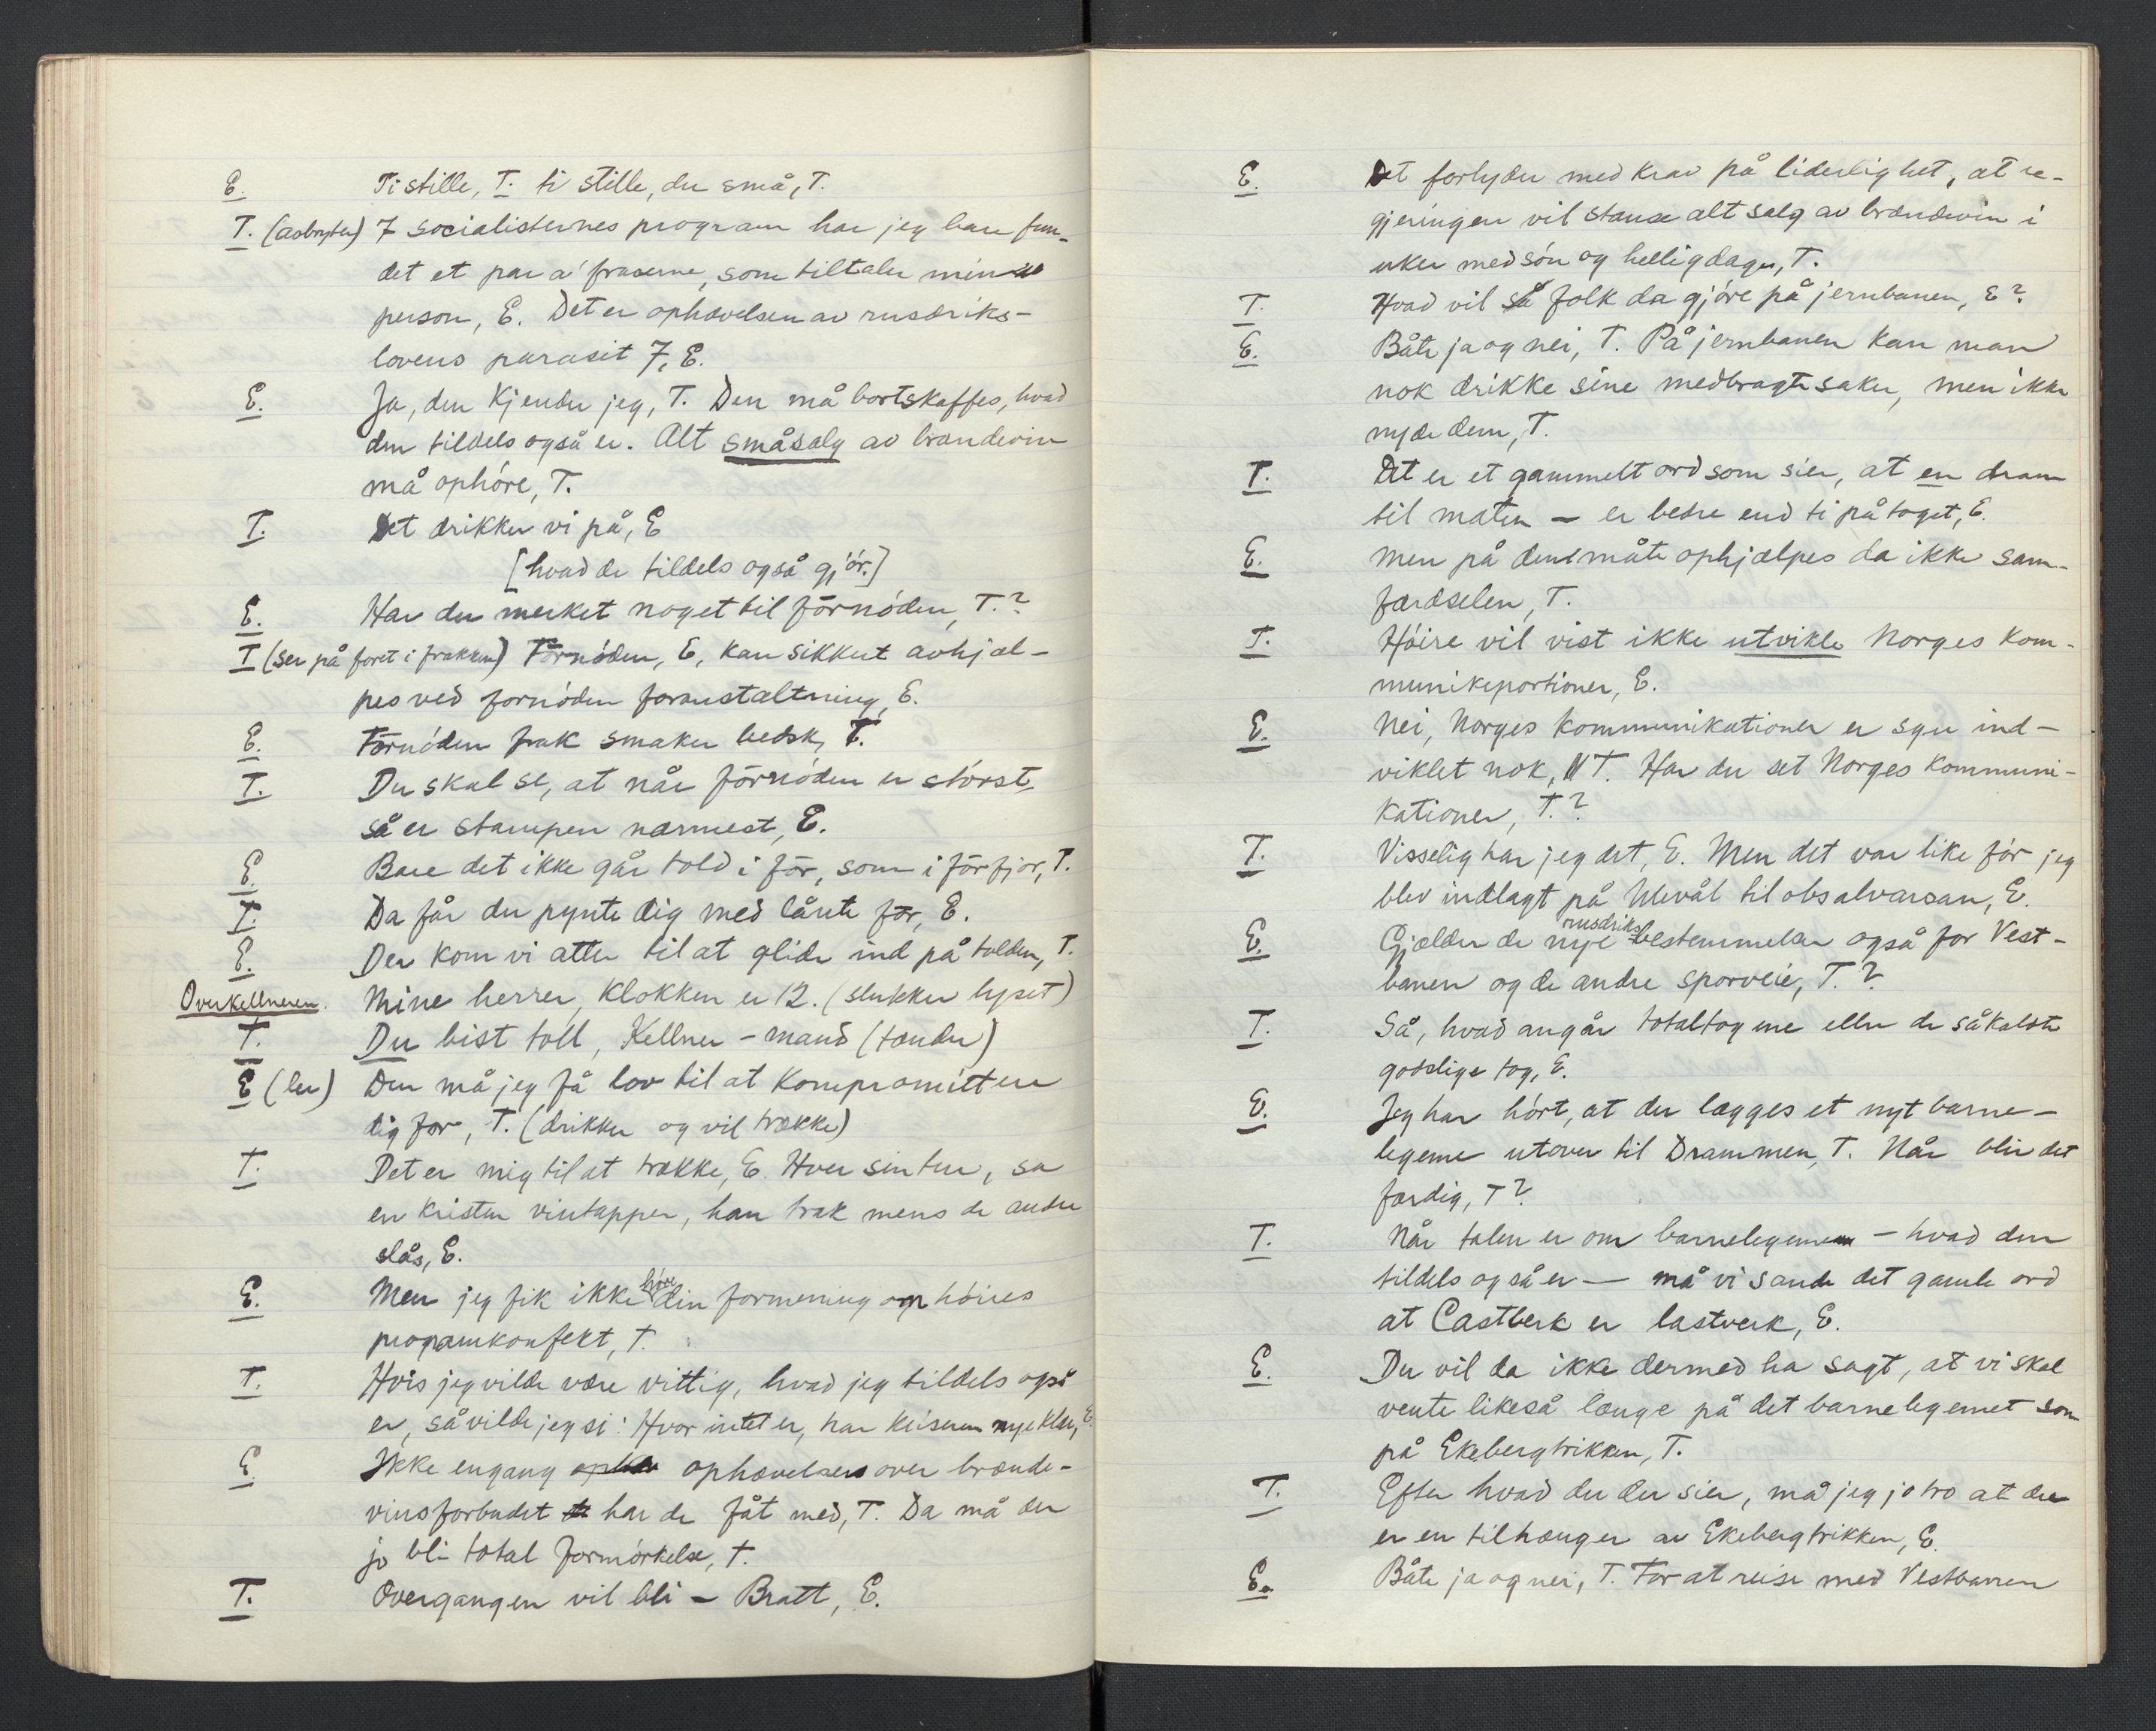 E. Ti stille, T. ti stille, du små, T.
T. (avbryter) I socialisternes program har jeg bare fun-
det et par a' fraserne, som tiltaler min
person, E. Det er ophævelsen av rusdriks-
lovens parasit 7, E.
E. Ja, den kjender jeg, T. Den må bortskaffes, hvad
den tildels også er. Alt småsalg av brændevin
må ophöre, T.
T. Det drikker vi på, E
[hvad de tildels også gjör.]
E. Har du merket noget til fôrnöden, T.?
T (ser på foret i frakken) Fôrnöden, E, kan sikkert avhjæl-
pes ved fornöden foranstaltning, E.
E. Fôrnöden frak smaker bedsk, T.
T. Du skal se, at når fôrnöden er störst,
så er stampen nærmest, E.
E. Bare det ikke går told i fôr, som i fôrfjor, T.
T. Da får du pynte dig med lånte fôr, E.
E. Der kom vi atter til at glide ind på tolden, T.
Overkellneren. Mine herrer, klokken er 12. (slukker lyset)
T. Du bist toll, Kellner-mand (tænder)
E (ler) Den må jeg få lov til at kompromittere
dig for, T. (drikker og vil trække)
T. Det er mig til at trække, E. Hver sin tur, sa
en kristen vintapper, han trak mens de andre
slås, E.
E. Men jeg fik ikke höre din formening om höires
programkonfekt, T.
T. Hvis jeg vilde være vittig, hvad jeg tildels også
er, så vilde jeg si: Hvor intet er, har keiseren nye klær, E.
E. Ikke engang ophævelsen over brænde-
vinsforbudet har de fåt med, T. Da må der
jo bli total formörkelse, T.
T. Overgangen vil bli – Bratt, E.
E. Det forlyder med krav på liderlighet, at re-
gjeringen vil stanse alt salg av brændevin i
uker med sön og helligdager, T.
T. Hvad vil så folk da gjöre på jernbanen, E?
E. Båte ja og nei, T. På jernbanen kan man
nok drikke sine medbragte saker, men ikke
nyde dem, T.
T. Det er et gammelt ord som sier, at en dram
til maten – er bedre end ti på toget, E.
E. Men på den måte ophjælpes da ikke sam-
færdselen, T.
T. Höire vil vist ikke utvikle Norges kom-
munikeportioner, E.
E. Nei, Norges kommunikationer er sgu ind-
viklet nok, T. Har du set Norges kommuni-
kationer, T.?
T. Visselig har jeg det, E. Men det var like för jeg
blev indlagt på Ulevål til obsalvarsan, E.
E. Gjælder de nye rusdriksbestemmelser også for Vest-
banen og de andre sporveie, T.?
T. Så, hvad angår totaltogene eller de såkaldte
godslige tog, E.
E. Jeg har hört, at der lægges et nyt barne-
legeme utover til Drammen, T. Når blir det
færdig, T?
T. Når talen er om barnelegemen – hvad den
tildels også er – må vi sande det gamle ord
at Castberk er lastverk, E.
E. Du vil da ikke dermed ha sagt, at vi skal
vente likeså længe på det barnelegemet som
på Ekebergtrikken, T.
T. Efter hvad du der sier, må jeg jo tro at du
er en tilhænger av Ekebergtrikken, E.
E. Båte ja og nei, T. For at reise med Vestbanen